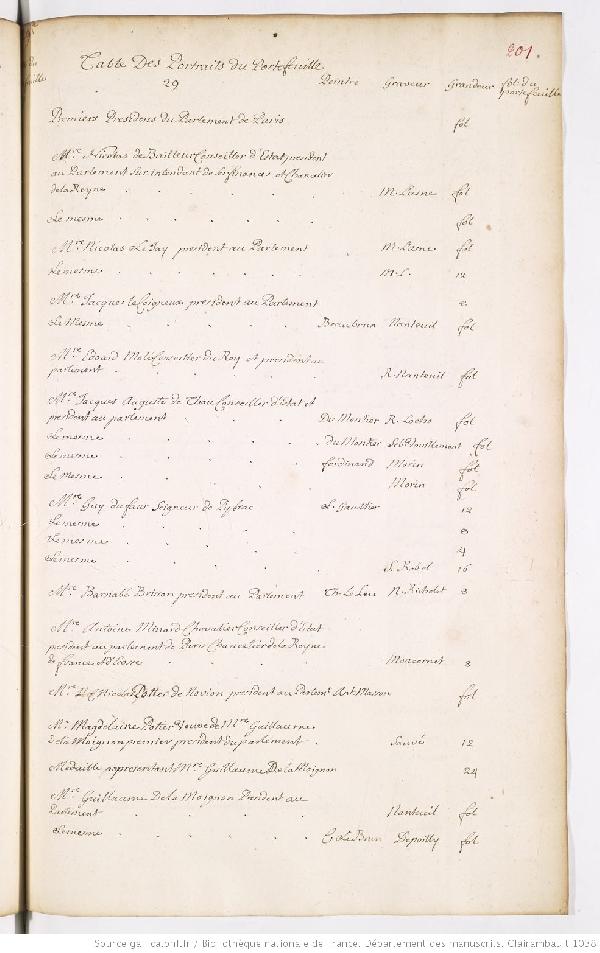 201.
Table Des Portraits du Portefeuille
29 Peintre Graveur Grandeur fol. du portefeuille
Premiers Presidens du Parlement de Paris fol
Mre. Nicolas de Bailleur Conseiller d'Estat president
au Parlement Sur intendant des finances et Chancelier
de la Reyne . . . . M. Lasne fol
Le mesme . . . . fol
Mre. Nicolas Le Jay president au Parlement M. Lasne fol
Le mesme . . . . M. L. 12
Mre. Jacques le Coigneux president au Parlement 8
Le Mesme . . . . Beaubrun Nanteuil fol
Mre. Edouard Molé Conseiller du Roy et president au
parlement . . . . R. Nanteuil fol
Mre. Jacques Auguste de Thou Conseiller d'Estat et
president au parlement . . . Du Monstier R. Lochon fol
Le mesme . . . . Du Monstier fol
Le mesme . . . . ferdinand Morin fol
Le mesme . . . . Morin fol
Mre. Guy du faur Seigneur de Pybrac L. Gaultier 12
Le mesme . . . . 8
Le mesme . . . . 4
Le mesme . . . . 16
Mre. Barnabé Brisson president au Parlement Th. Le Leu N. Richelet 8
Mre. Antoine Minard Chevalier Conseiller d'Estat
president au parlement de Paris Chancelier de la Reyne
de france et d'Ecosse . . . Moncornet 8
Mre. Nicolas Potier de Novion president au Parlemt. Ant. Masson fol
Me. Magdelaine Potier Veuve de Mre. Guillaume
de la Moignon premier president du parlement . Sauvé 12
Médaille representant Mre. Guillaume De la Moignon 24
Mre. Guillaume De la Moignon President au
Parlement . . . . Nanteuil fol
Le mesme . . . . C. Le Brun Depoilly fol
Source gallica.bnf.fr / Bibliothèque nationale de France. Département des manuscrits. Clairambault 1038